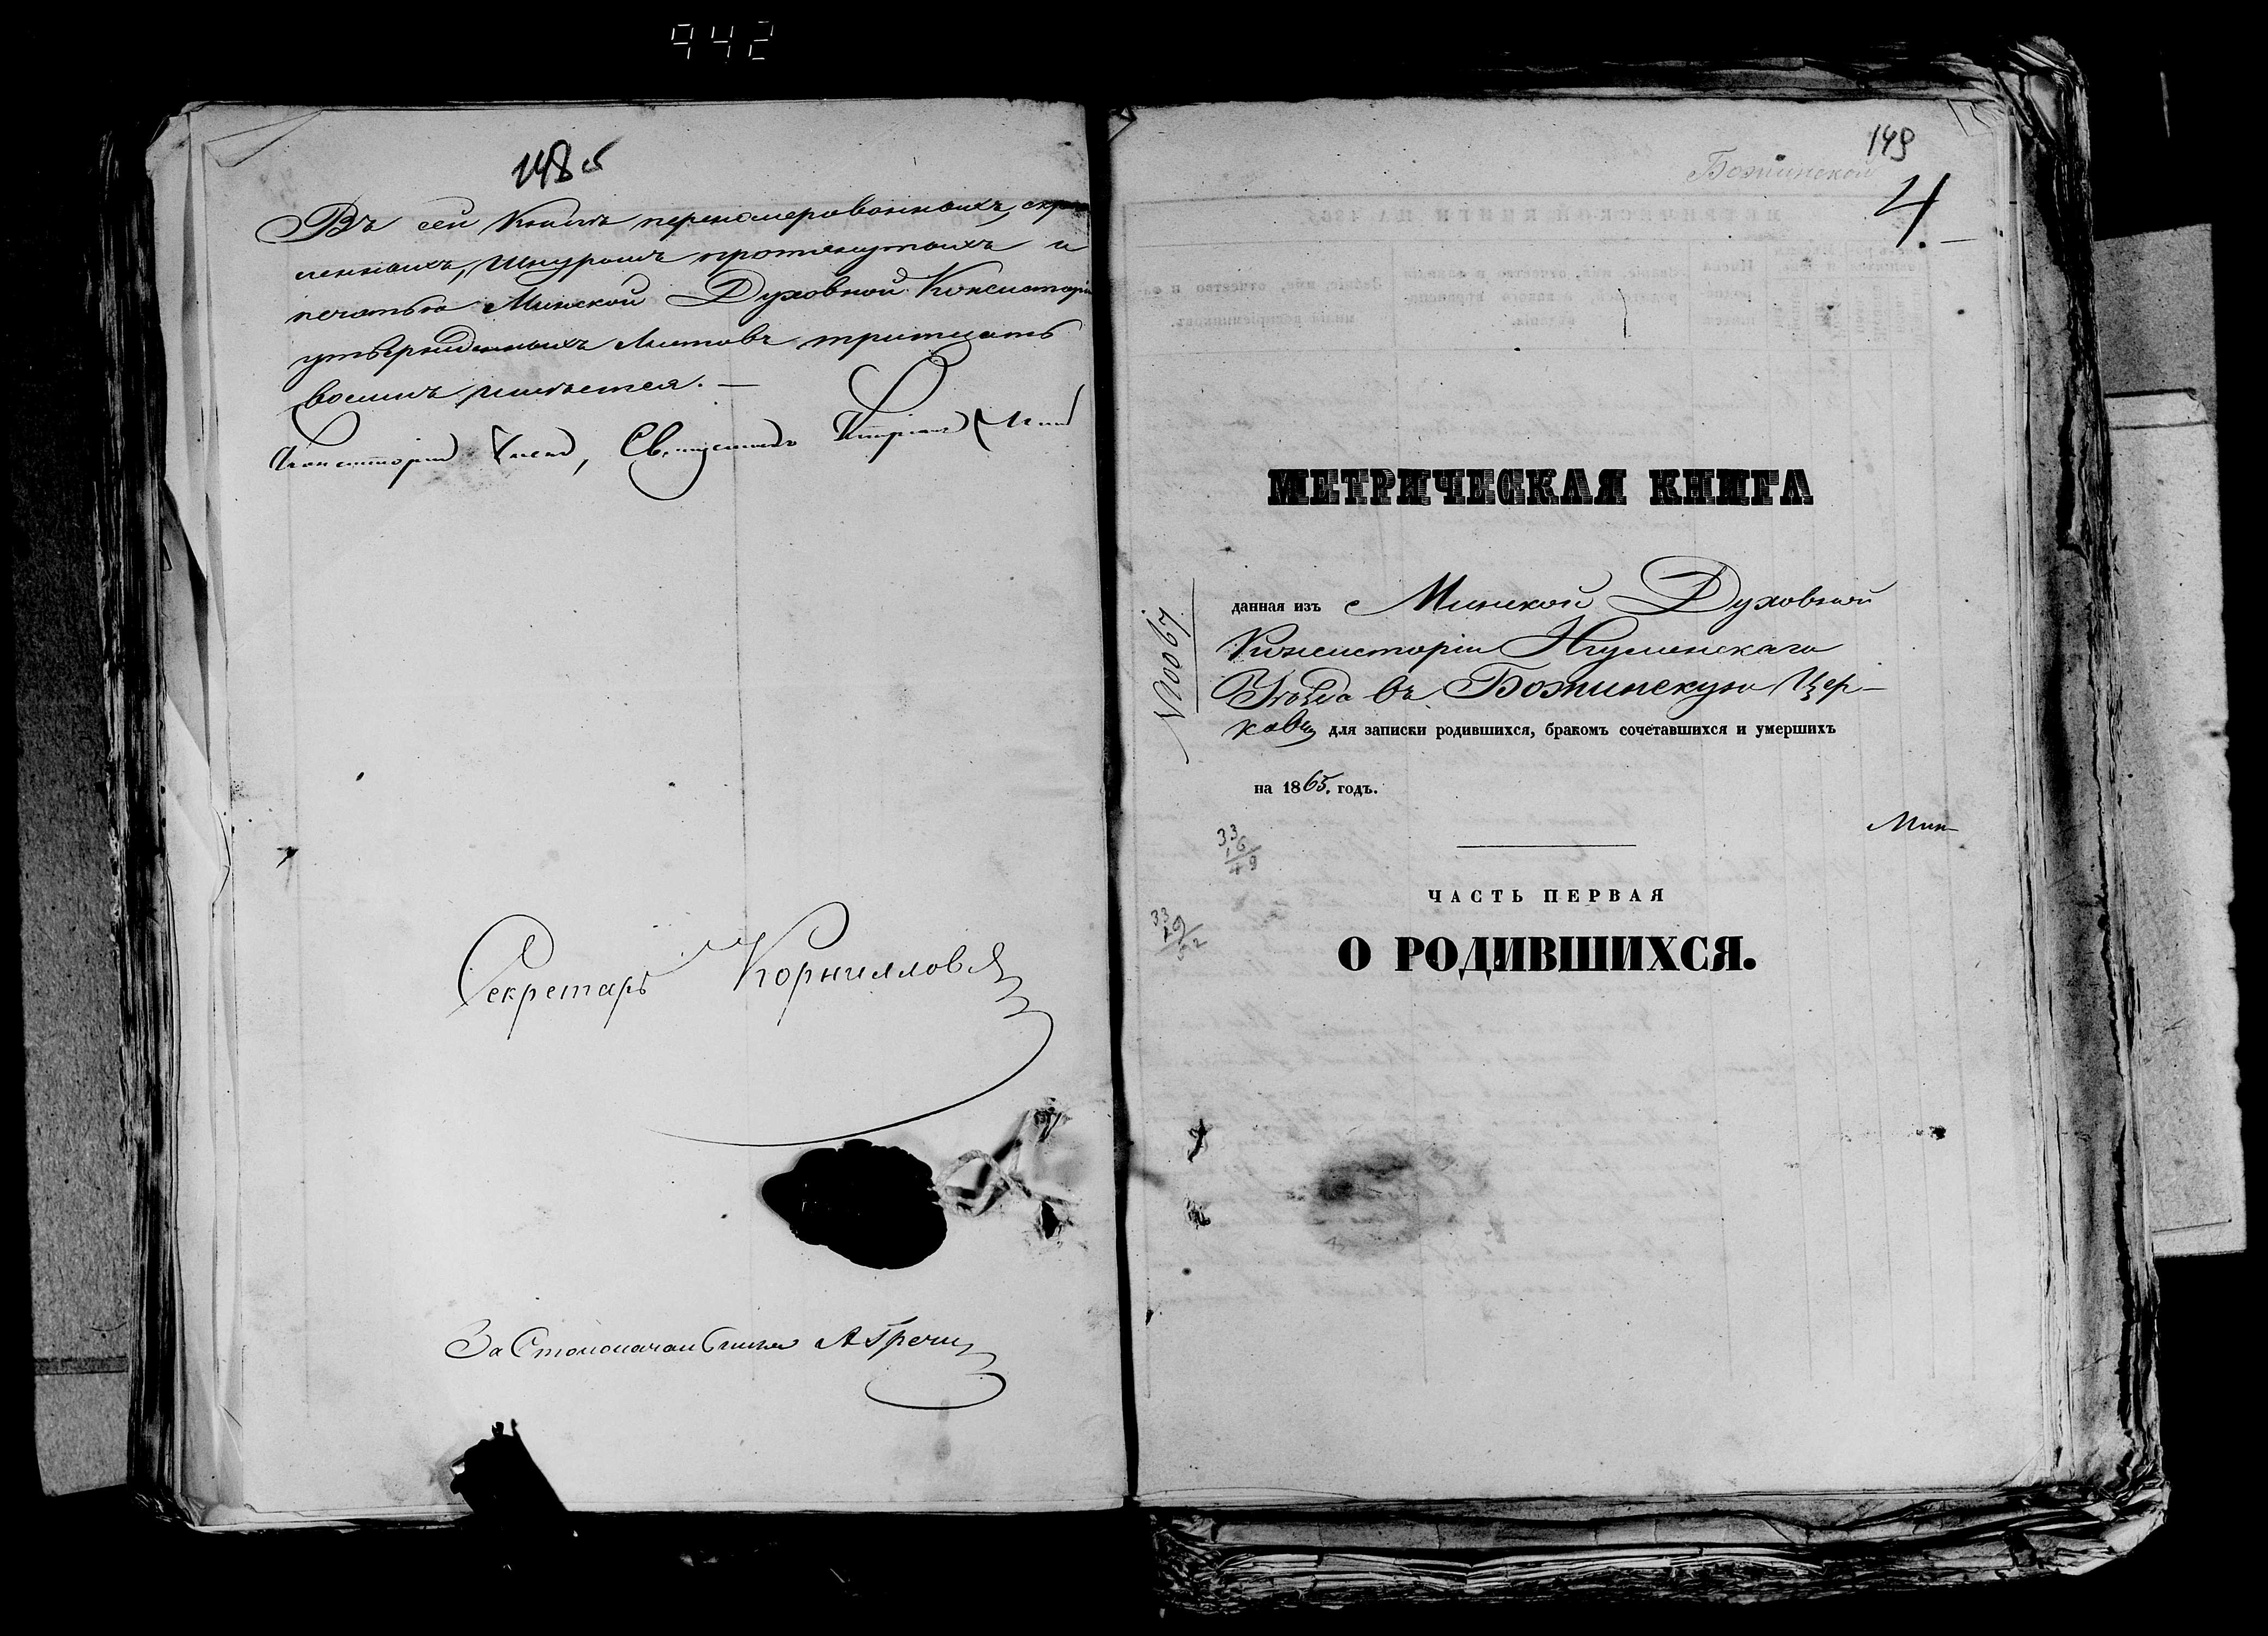 942
148 об
Въ сей Книгѣ перенумерованныхъ, скреп
ленныхъ, шнуромъ протянутыхъ и
печатью Минской Духовной Консисторіи
утвержденныхъ листовъ тритцать
восемь имѣется. —
Консисторіи Членъ, Священникъ
Секретарь Корнилловъ
За Столоначальника А Гречи
149
Божинской
4.
МЕТРИЧЕСКАЯ КНИГА
данная изъ Минской Духовной
Консисторіи Игуменскаго
Уѣзда въ Божинскую Цер-
ковь для записки родившихся, бракомъ сочетавшихся и умершихъ
на 1865. годъ.
Мин-
33
16
49
33
19
52
ЧАСТЬ ПЕРВАЯ
О РОДИВШИХСЯ.